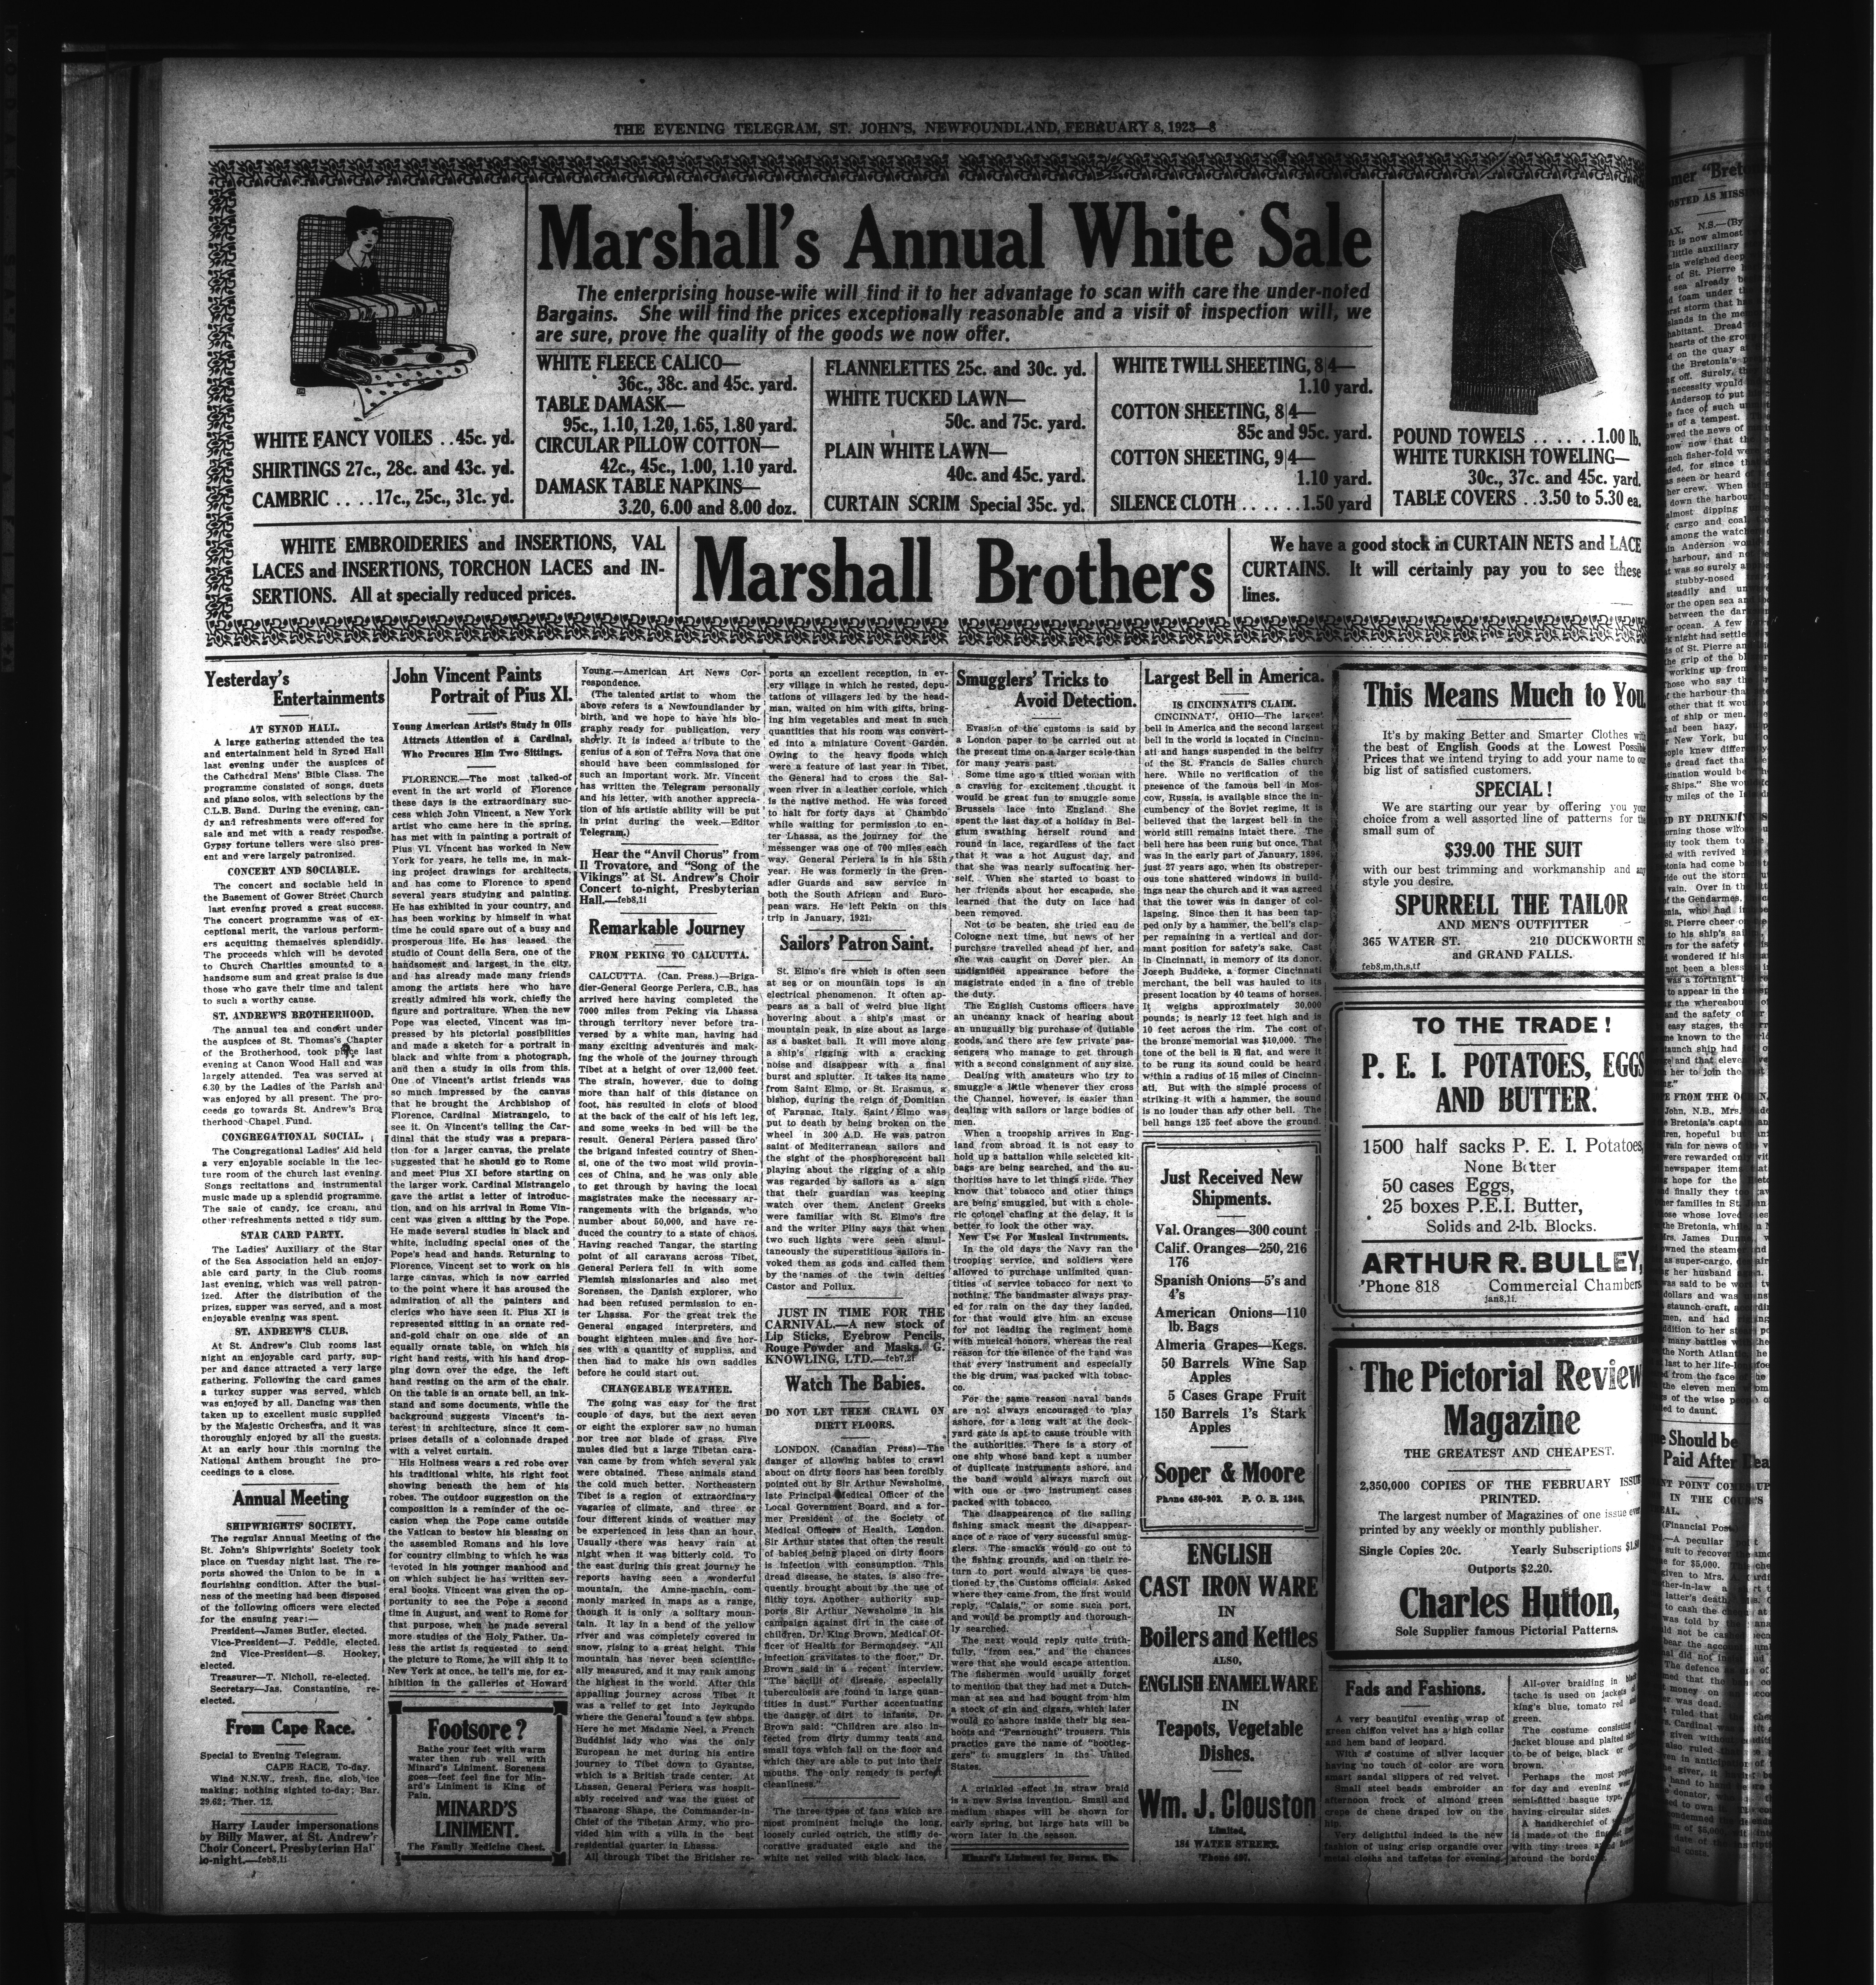 THE EVENING TELEGRAM, ST. JOHN'S, NEWFOUNDLAND, FEBRUARY 8, 1923—8
Marshall's Annual White Sale
The enterprising house-wife will find it to her advantage to scan with care the under-noted
Bargains. She will find the prices exceptionally reasonable and a visit of inspection will, we
are sure, prove the quality of the goods we now offer.
WHITE FANCY VOILES ..45c. yd.
SHIRTINGS 27c., 28c. and 43c. yd.
CAMBRIC ....17c., 25c., 31c. yd.
WHITE FLEECE CALICO—
36c., 38c. and 45c. yard.
TABLE DAMASK—
95c., 1.10, 1.20, 1.65, 1.80 yard.
CIRCULAR PILLOW COTTON—
42c., 45c., 1.00, 1.10 yard.
DAMASK TABLE NAPKINS—
3.20, 6.00 and 8.00 doz.
FLANNELETTES 25c. and 30c. yd.
WHITE TUCKED LAWN—
50c. and 75c. yard.
PLAIN WHITE LAWN—
40c. and 45c. yard.
CURTAIN SCRIM Special 35c. yd.
WHITE TWILL SHEETING, 8|4—
1.10 yard.
COTTON SHEETING, 8|4—
85c and 95c. yard.
COTTON SHEETING, 9|4—
1.10 yard.
SILENCE CLOTH ......1.50 yard
POUND TOWELS ......1.00 lb.
WHITE TURKISH TOWELING—
30c., 37c. and 45c. yard.
TABLE COVERS ..3.50 to 5.30 ea.
WHITE EMBROIDERIES and INSERTIONS, VAL
LACES and INSERTIONS, TORCHON LACES and IN-
SERTIONS. All at specially reduced prices.
Marshall Brothers
We have a good stock in CURTAIN NETS and LACE
CURTAINS. It will certainly pay you to see these
lines.
Yesterday's
Entertainments
AT SYNOD HALL.
A large gathering attended the tea
and entertainment held in Synod Hall
last evening under the auspices of
the Cathedral Mens' Bible Class. The
programme consisted of songs, duets
and piano solos, with selections by the
C.L.B. Band. During the evening, can-
dy and refreshments were offered for
sale and met with a ready response.
Gypsy fortune tellers were also pres-
ent and were largely patronized.
CONCERT AND SOCIABLE.
The concert and sociable held in
the Basement of Gower Street Church
last evening proved a great success.
The concert programme was of ex-
ceptional merit, the various perform-
ers acquiting themselves splendidly.
The proceeds which will be devoted
to Church Charities amounted to a
handsome sum and great praise is due
those who gave their time and talent
to such a worthy cause.
ST. ANDREW'S BROTHERHOOD.
The annual tea and concert under
the auspices of St. Thomas's Chapter
of the Brotherhood, took place last
evening at Canon Wood Hall and was
largely attended. Tea was served at
6.30 by the Ladies of the Parish and
was enjoyed by all present. The pro-
ceeds go towards St. Andrew's Bro-
therhood Chapel Fund.
CONGREGATIONAL SOCIAL.
The Congregational Ladies' Aid held
a very enjoyable sociable in the lec-
ture room of the church last evening.
Songs recitations and instrumental
music made up a splendid programme.
The sale of candy, ice cream, and
other refreshments netted a tidy sum.
STAR CARD PARTY.
The Ladies' Auxiliary of the Star
of the Sea Association held an enjoy-
able card party in the Club rooms
last evening, which was well patron-
ized. After the distribution of the
prizes, supper was served, and a most
enjoyable evening was spent.
ST. ANDREW'S CLUB.
At St. Andrew's Club rooms last
night an enjoyable card party, sup-
per and dance attracted a very large
gathering. Following the card games
a turkey supper was served, which
was enjoyed by all. Dancing was then
taken up to excellent music supplied
by the Majestic Orchestra, and it was
thoroughly enjoyed by all the guests.
At an early hour this morning the
National Anthem brought the pro-
ceedings to a close.
Annual Meeting
SHIPWRIGHTS' SOCIETY.
The regular Annual Meeting of the
St. John's Shipwrights' Society took
place on Tuesday night last. The re-
ports showed the Union to be in a
flourishing condition. After the busi-
ness of the meeting had been disposed
of the following officers were elected
for the ensuing year:—
President—James Butler, elected.
Vice-President—J. Peddle, elected.
2nd Vice-President—S. Hookey,
elected.
Treasurer—T. Nicholl, re-elected.
Secretary—Jas. Constantine, re-
elected.
From Cape Race.
Special to Evening Telegram.
CAPE RACE, To-day.
Wind N.N.W., fresh, fine, slob, ice
making; nothing sighted to-day; Bar.
29.62; Ther. 12.
Harry Lauder impersonations
by Billy Mawer, at St. Andrew's
Choir Concert, Presbyterian Hall
to-night.—feb8,1i
John Vincent Paints
Portrait of Pius XI.
Young American Artist's Study in Oils
Attracts Attention of a Cardinal,
Who Procures Him Two Sittings.
FLORENCE.—The most talked-of
event in the art world of Florence
these days is the extraordinary suc-
cess which John Vincent, a New York
artist who came here in the spring,
has met with in painting a portrait of
Pius VI. Vincent has worked in New
York for years, he tells me, in mak-
ing project drawings for architects,
and has come to Florence to spend
several years studying and painting.
He has exhibited in your country, and
has been working by himself in what
time he could spare out of a busy and
prosperous life. He has leased the
studio of Count della Sera, one of the
handsomest and largest in the city,
and has already made many friends
among the artists here who have
greatly admired his work, chiefly the
figure and portraiture. When the new
Pope was elected, Vincent was im-
pressed by his pictorial possibilities
and made a sketch for a portrait in
black and white from a photograph,
and then a study in oils from this.
One of Vincent's artist friends was
so much impressed by the canvas
that he brought the Archbishop of
Florence, Cardinal Mistrangelo, to
see it. On Vincent's telling the Car-
dinal that the study was a prepara-
tion for a larger canvas, the prelate
suggested that he should go to Rome
and meet Pius XI before starting on
the larger work. Cardinal Mistrangelo
gave the artist a letter of introduc-
tion, and on his arrival in Rome Vin-
cent was given a sitting by the Pope.
He made several studies in black and
white, including special ones of the
Pope's head and hands. Returning to
Florence, Vincent set to work on his
large canvas, which is now carried
to the point where it has aroused the
admiration of all the painters and
clerics who have seen it. Pius XI is
represented sitting in an ornate red-
and-gold chair on one side of an
equally ornate table, on which his
right hand rests, with his hand drop-
ping down over the edge, the left
hand resting on the arm of the chair.
On the table is an ornate bell, an ink-
stand and some documents, while the
background suggests Vincent's in-
terest in architecture, since it com-
prises details of a colonnade draped
with a velvet curtain.
His Holiness wears a red robe over
his traditional white, his right foot
showing beneath the hem of his
robes. The outdoor suggestion on the
composition is a reminder of the oc-
casion when the Pope came outside
the Vatican to bestow his blessing on
the assembled Romans and his love
for country climbing to which he was
devoted in his younger manhood and
on which subject he has written sev-
eral books. Vincent was given the op-
portunity to see the Pope a second
time in August, and went to Rome for
that purpose, when he made several
more studies of the Holy Father. Un-
less the artist is requested to send
the picture to Rome, he will ship it to
New York at once, he tell's me, for ex-
hibition in the galleries of Howard
Footsore?
Bathe your feet with warm
water then rub well with
Minard's Liniment. Soreness
goes—feet feel fine for Min-
ard's Liniment is King of
Pain.
MINARD'S
LINIMENT.
The Family Medicine Chest.
Young.—American Art News Cor-
respondence.
(The talented artist to whom the
above refers is a Newfoundlander by
birth, and we hope to have his bio-
graphy ready for publication, very
shortly. It is indeed a tribute to the
genius of a son of Terra Nova that one
should have been commissioned for
such an important work. Mr. Vincent
has written the Telegram personally
and his letter, with another apprecia-
tion of his artistic ability will be put
in print during the week.—Editor
Telegram.)
Hear the "Anvil Chorus" from
Il Trovatore, and "Song of the
Vikings" at St. Andrew's Choir
Concert to-night, Presbyterian
Hall.—feb8,1i
Remarkable Journey
FROM PEKING TO CALCUTTA.
CALCUTTA. (Can. Press.)—Briga-
dier-General George Periera, C.B., has
arrived here having completed the
7000 miles from Peking via Lhassa
through territory never before tra-
versed by a white man, having had
many exciting adventures and mak-
ing the whole of the journey through
Tibet at a height of over 12,000 feet.
The strain, however, due to doing
more than half of this distance on
foot, has resulted in clots of blood
at the back of the calf of his left leg,
and some weeks in bed will be the
result. General Periera passed thro'
the brigand infested country of Shen-
si, one of the two most wild provin-
ces of China, and he was only able
to get through by having the local
magistrates make the necessary ar-
rangements with the brigands, who
number about 50,000, and have re-
duced the country to a state of chaos.
Having reached Tangar, the starting
point of all caravans across Tibet,
General Periera fell in with some
Flemish missionaries and also met
Sorensen, the Danish explorer, who
had been refused permission to en-
ter Lhassa. For the great trek the
General engaged interpreters, and
bought eighteen mules and five hor-
ses with a quantity of supplies, and
then had to make his own saddles
before he could start out.
CHANGEABLE WEATHER.
The going was easy for the first
couple of days, but the next seven
or eight the explorer saw no human
nor tree nor blade of grass. Five
mules died but a large Tibetan cara-
van came by from which several yak
were obtained. These animals stand
the cold much better. Northeastern
Tibet is a region of extraordinary
vagaries of climate, and three or
four different kinds of weather may
be experienced in less than an hour.
Usually there was heavy rain at
night when it was bitterly cold. To
the east during this great journey he
reports having seen a wonderful
mountain, the Amne-machin, com-
monly marked in maps as a range,
though it is only a solitary moun-
tain. It lay in a bend of the yellow
river and was completely covered in
snow, rising to a great height. This
mountain has never been scientific-
ally measured, and it may rank among
the highest in the world. After this
appalling journey across Tibet it
was a relief to get into Jeykundo
where the General found a few shops.
Here he met Madame Neel, a French
Buddhist lady who was the only
European he met during his entire
journey to Tibet down to Gyantse,
which is a British trade center. At
Lhassen, General Periera was hospit-
ably received and was the guest of
Thaarong Shape, the Commander-in-
Chief of the Tibetan Army, who pro-
vided him with a villa in the best
residential quarter in Lhassa.
All through Tibet the Britisher re-
ports an excellent reception, in ev-
ery village in which he rested, depu-
tations of villagers led by the head-
man, waited on him with gifts, bring-
ing him vegetables and meat in such
quantities that his room was convert-
ed into a miniature Covent Garden.
Owing to the heavy floods which
were a feature of last year in Tibet,
the General had to cross the Sal-
ween river in a leather coriole, which
is the native method. He was forced
to halt for forty days at Chambdo
while waiting for permission to en-
ter Lhassa, as the journey for the
messenger was one of 700 miles each
way. General Periera is in his 58th
year. He was formerly in the Gren-
adier Guards and saw service in
both the South African and Euro-
pean wars. He left Pekin on this
trip in January, 1921.
Sailors' Patron Saint.
St. Elmo's fire which is often seen
at sea or on mountain tops is an
electrical phenomenon. It often ap-
pears as a ball of weird blue light
hovering about a ship's mast or
mountain peak, in size about as large
as a basket ball. It will move along
a ship's rigging with a cracking
noise and disappear with a final
burst and splutter. It takes its name
from Saint Elmo, or St. Erasmus, a
bishop, during the reign of Domitian
of Faranac, Italy. Saint Elmo was
put to death by being broken on the
wheel in 300 A.D. He was patron
saint of Mediterranean sailors and
the sight of the phosphorescent ball
playing about the rigging of a ship
was regarded by sailors as a sign
that their guardian was keeping
watch over them. Ancient Greeks
were familiar with St. Elmo's fire
and the writer Pliny says that when
two such lights were seen simul-
taneously the superstitious sailors in-
voked them as gods and called them
by the names of the twin deities
Castor and Pollux.
JUST IN TIME FOR THE
CARNIVAL.—A new stock of
Lip Sticks, Eyebrow Pencils,
Rouge Powder and Masks. G.
KNOWLING, LTD.—feb7,2i
Watch The Babies.
DO NOT LET THEM CRAWL ON
DIRTY FLOORS.
LONDON. (Canadian Press)—The
danger of allowing babies to crawl
about on dirty floors has been forcibly
pointed out by Sir Arthur Newsholme,
late Principal Medical Officer of the
Local Government Board, and a for-
mer President of the Society of
Medical Officers of Health, London.
Sir Arthur states that often the result
of babies being placed on dirty floors
is infection with consumption. This
dread disease, he states, is also fre-
quently brought about by the use of
filthy toys. Another authority sup-
ports Sir Arthur Newsholme in his
campaign against dirt in the case of
children, Dr. King Brown, Medical Of-
ficer of Health for Bermondsey. "All
infection gravitates to the floor," Dr.
Brown said in a recent interview.
"The bacilli of disease, especially
tuberculosis are found in large quan-
tities in dust." Further accentuating
the danger of dirt to infants, Dr.
Brown said: "Children are also in-
fected from dirty dummy teats and
small toys which fall on the floor and
which they are able to put into their
mouths. The only remedy is perfect
cleanliness."
The three types of fans which are
most prominent include the long,
loosely curled ostrich, the stiffly de-
corative graduated eagle and the
white net veiled with black lace.
Smugglers' Tricks to
Avoid Detection.
Evasion of the customs is said by
a London paper to be carried out at
the present time on a larger scale than
for many years past.
Some time ago a titled woman with
a craving for excitement thought it
would be great fun to smuggle some
Brussels lace into England. She
spent the last day of a holiday in Bel-
gium swathing herself round and
round in lace, regardless of the fact
that it was a hot August day, and
that she was nearly suffocating her-
self. When she started to boast to
her friends about her escapade, she
learned that the duty on lace had
been removed.
Not to be beaten, she tried eau de
Cologne next time, but news of her
purchase travelled ahead of her, and
she was caught on Dover pier. An
undignified appearance before the
magistrate ended in a fine of treble
the duty.
The English Customs officers have
an uncanny knack of hearing about
an unusually big purchase of dutiable
goods, and there are few private pas-
sengers who manage to get through
with a second consignment of any size.
Dealing with amateurs who try to
smuggle a little whenever they cross
the Channel, however, is easier than
dealing with sailors or large bodies of
men.
When a troopship arrives in Eng-
land from abroad it is not easy to
hold up a battalion while selected kit-
bags are being searched, and the au-
thorities have to let things slide. They
know that tobacco and other things
are being smuggled, but with a chole-
ric colonel chafing at the delay, it is
better to look the other way.
New Use For Musical Instruments.
In the old days the Navy ran the
trooping service, and soldiers were
allowed to purchase unlimited quan-
tities of service tobacco for next to
nothing. The bandmaster always pray-
ed for rain on the day they landed,
for that would give him an excuse
for not leading the regiment home
with musical honors, whereas the real
reason for the silence of the band was
that every instrument and especially
the big drum, was packed with tobac-
co.
For the same reason naval bands
are not always encouraged to play
ashore, for a long wait at the dock-
yard gate is apt to cause trouble with
the authorities. There is a story of
one ship whose band kept a number
of duplicate instruments ashore, and
the band would always march out
with one or two instrument cases
packed with tobacco.
The disappearance of the sailing
fishing smack meant the disappear-
ance of a race of very sucessful smug-
glers. The smacks would go out to
the fishing grounds, and on their re-
turn to port would always be ques-
tioned by the Customs officials. Asked
where they came from, the first would
reply, "Calais," or some such port,
and would be promptly and thorough-
ly searched.
The next would reply quite truth-
fully, "from sea," and the chances
were that she would escape attention.
The fishermen would usually forget
to mention that they had met a Dutch-
man at sea and had bought from him
a stock of gin and cigars, which later
would go ashore inside their big sea-
boots and "Fearnought" trousers. This
practice gave the name of "bootleg-
gers" to smugglers in the United
States.
A crinkled effect in straw braid
is a new Swiss invention. Small and
medium shapes will be shown for
early spring, but large hats will be
worn later in the season.
Minard's Liniment for Burns, Etc.
Largest Bell in America.
IS CINCINNATI'S CLAIM.
CINCINNATI, OHIO—The largest
bell in America and the second largest
bell in the world is located in Cincinn-
ati and hangs suspended in the belfry
of the St. Francis de Salles church
here. While no verification of the
presence of the famous bell in Mos-
cow, Russia, is available since the in-
cumbency of the Soviet regime, it is
believed that the largest bell in the
world still remains intact there. The
bell here has been rung but once. That
was in the early part of January, 1896,
just 27 years ago, when its obstreper-
ous tone shattered windows in build-
ings near the church and it was agreed
that the tower was in danger of col-
lapsing. Since then it has been tap-
ped only by a hammer, the bell's clap-
per remaining in a vertical and dor-
mant position for safety's sake. Cast
in Cincinnati, in memory of its donor,
Joseph Buddeke, a former Cincinnati
merchant, the bell was hauled to its
present location by 40 teams of horses.
It weighs approximately 30,000
pounds; is nearly 12 feet high and is
10 feet across the rim. The cost of
the bronze memorial was $10,000. The
tone of the bell is E flat, and were it
to be rung its sound could be heard
within a radius of 15 miles of Cincinn-
ati. But with the simple process of
striking it with a hammer, the sound
is no louder than any other bell. The
bell hangs 125 feet above the ground.
Just Received New
Shipments.
Val. Oranges—300 count
Calif. Oranges—250, 216
176
Spanish Onions—5's and
4's
American Onions—110
lb. Bags
Almeria Grapes—Kegs.
50 Barrels Wine Sap
Apples
5 Cases Grape Fruit
150 Barrels 1's Stark
Apples
Soper & Moore
Phone 480-902. P. O. B. 1345.
ENGLISH
CAST IRON WARE
IN
Boilers and Kettles
ALSO,
ENGLISH ENAMELWARE
IN
Teapots, Vegetable
Dishes.
Wm. J. Clouston
Limited,
184 WATER STREET.
'Phone 497.
This Means Much to You
It's by making Better and Smarter Clothes with
the best of English Goods at the Lowest Possible
Prices that we intend trying to add your name to our
big list of satisfied customers.
SPECIAL!
We are starting our year by offering you your
choice from a well assorted line of patterns for the
small sum of
$39.00 THE SUIT
with our best trimming and workmanship and any
style you desire.
SPURRELL THE TAILOR
AND MEN'S OUTFITTER
365 WATER ST. 210 DUCKWORTH ST
and GRAND FALLS.
feb8,m,th,s,tf
TO THE TRADE!
P. E. I. POTATOES, EGGS
AND BUTTER.
1500 half sacks P. E. I. Potatoes,
None Better
50 cases Eggs,
25 boxes P.E.I. Butter,
Solids and 2-lb. Blocks.
ARTHUR R. BULLEY,
'Phone 818 Commercial Chambers
jan8,1f.
The Pictorial Review
Magazine
THE GREATEST AND CHEAPEST.
2,350,000 COPIES OF THE FEBRUARY ISSUE
PRINTED.
The largest number of Magazines of one issue ever
printed by any weekly or monthly publisher.
Single Copies 20c. Yearly Subscriptions
Outports $2.20.
Charles Hutton,
Sole Supplier famous Pictorial Patterns.
Fads and Fashions.
A very beautiful evening wrap of
green chiffon velvet has a high collar
and hem band of leopard.
With a costume of silver lacquer
having no touch of color are worn
smart sandal slippers of red velvet.
Small steel beads embroider an
afternoon frock of almond green
crepe de chene draped low on the
hip.
Very delightful indeed is the new
fashion of using crisp organdie over
metal cloths and taffetas for evening.
All-over braiding in black
tache is used on jackets of
king's blue, tomato red and
green.
The costume consisting
jacket blouse and plaited
to be of beige, black or
brown.
Perhaps the most popular
for day and evening
semi-fitted basque type,
having circular sides.
A handkerchief of
is made of the
with tiny trees
around the border.